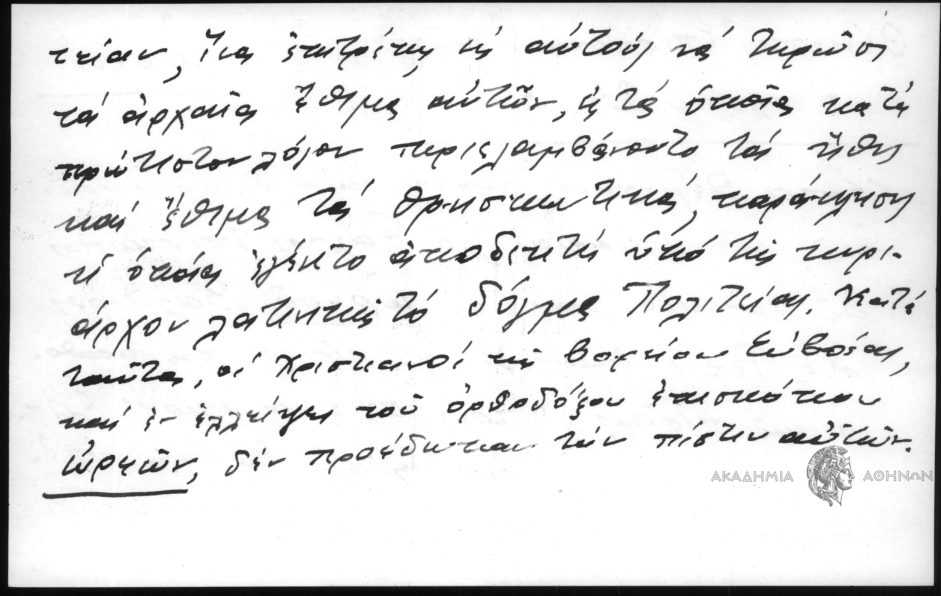 τείαν, ἵνα ἐπιτρέπῃ εἰς αὐτούς νά τηρῶσι
τά ἀρχαῖα ἔθιμα αὐτῶν, εἰς τά ὁποῖα κατά
πρώτιστον λόγον περιελαμβάνοντο τά ἤθη
καί ἔθιμα τά θρησκευτικά, παράκλησις
ἡ ὁποία ἐγένετο ἀποδεκτή ὑπό τῆς κυρι-
άρχου λατινικῆς τό δόγμα Πολιτείας. Κατά
ταῦτα, οἱ Χριστιανοί τῆς βορείου Εὐβοίας,
καί ἐν ἐλλείψει τοῦ ὀρθοδόξου ἐπισκόπου
Ὠρεῶν, δέν προέδωκαν τήν πίστιν αὐτῶν.
ΑΚΑΔΗΜΙΑ ΑΘΗΝΩΝ